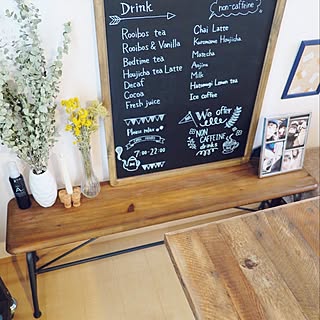 Drink
non-caffeine
Rooibos tea
Rooibos & Vanilla
Bedtime tea
Houjicha tea Latte
Decaf
Cocoa
Fresh juice
Chai Latte
Kuromame Houjicha
Matcha
Anzira
Milk
Hatomugi Lemon tea
Ice coffee
Please relax
7:00-22:00
We offer
NON
CAFFEINE
drinks